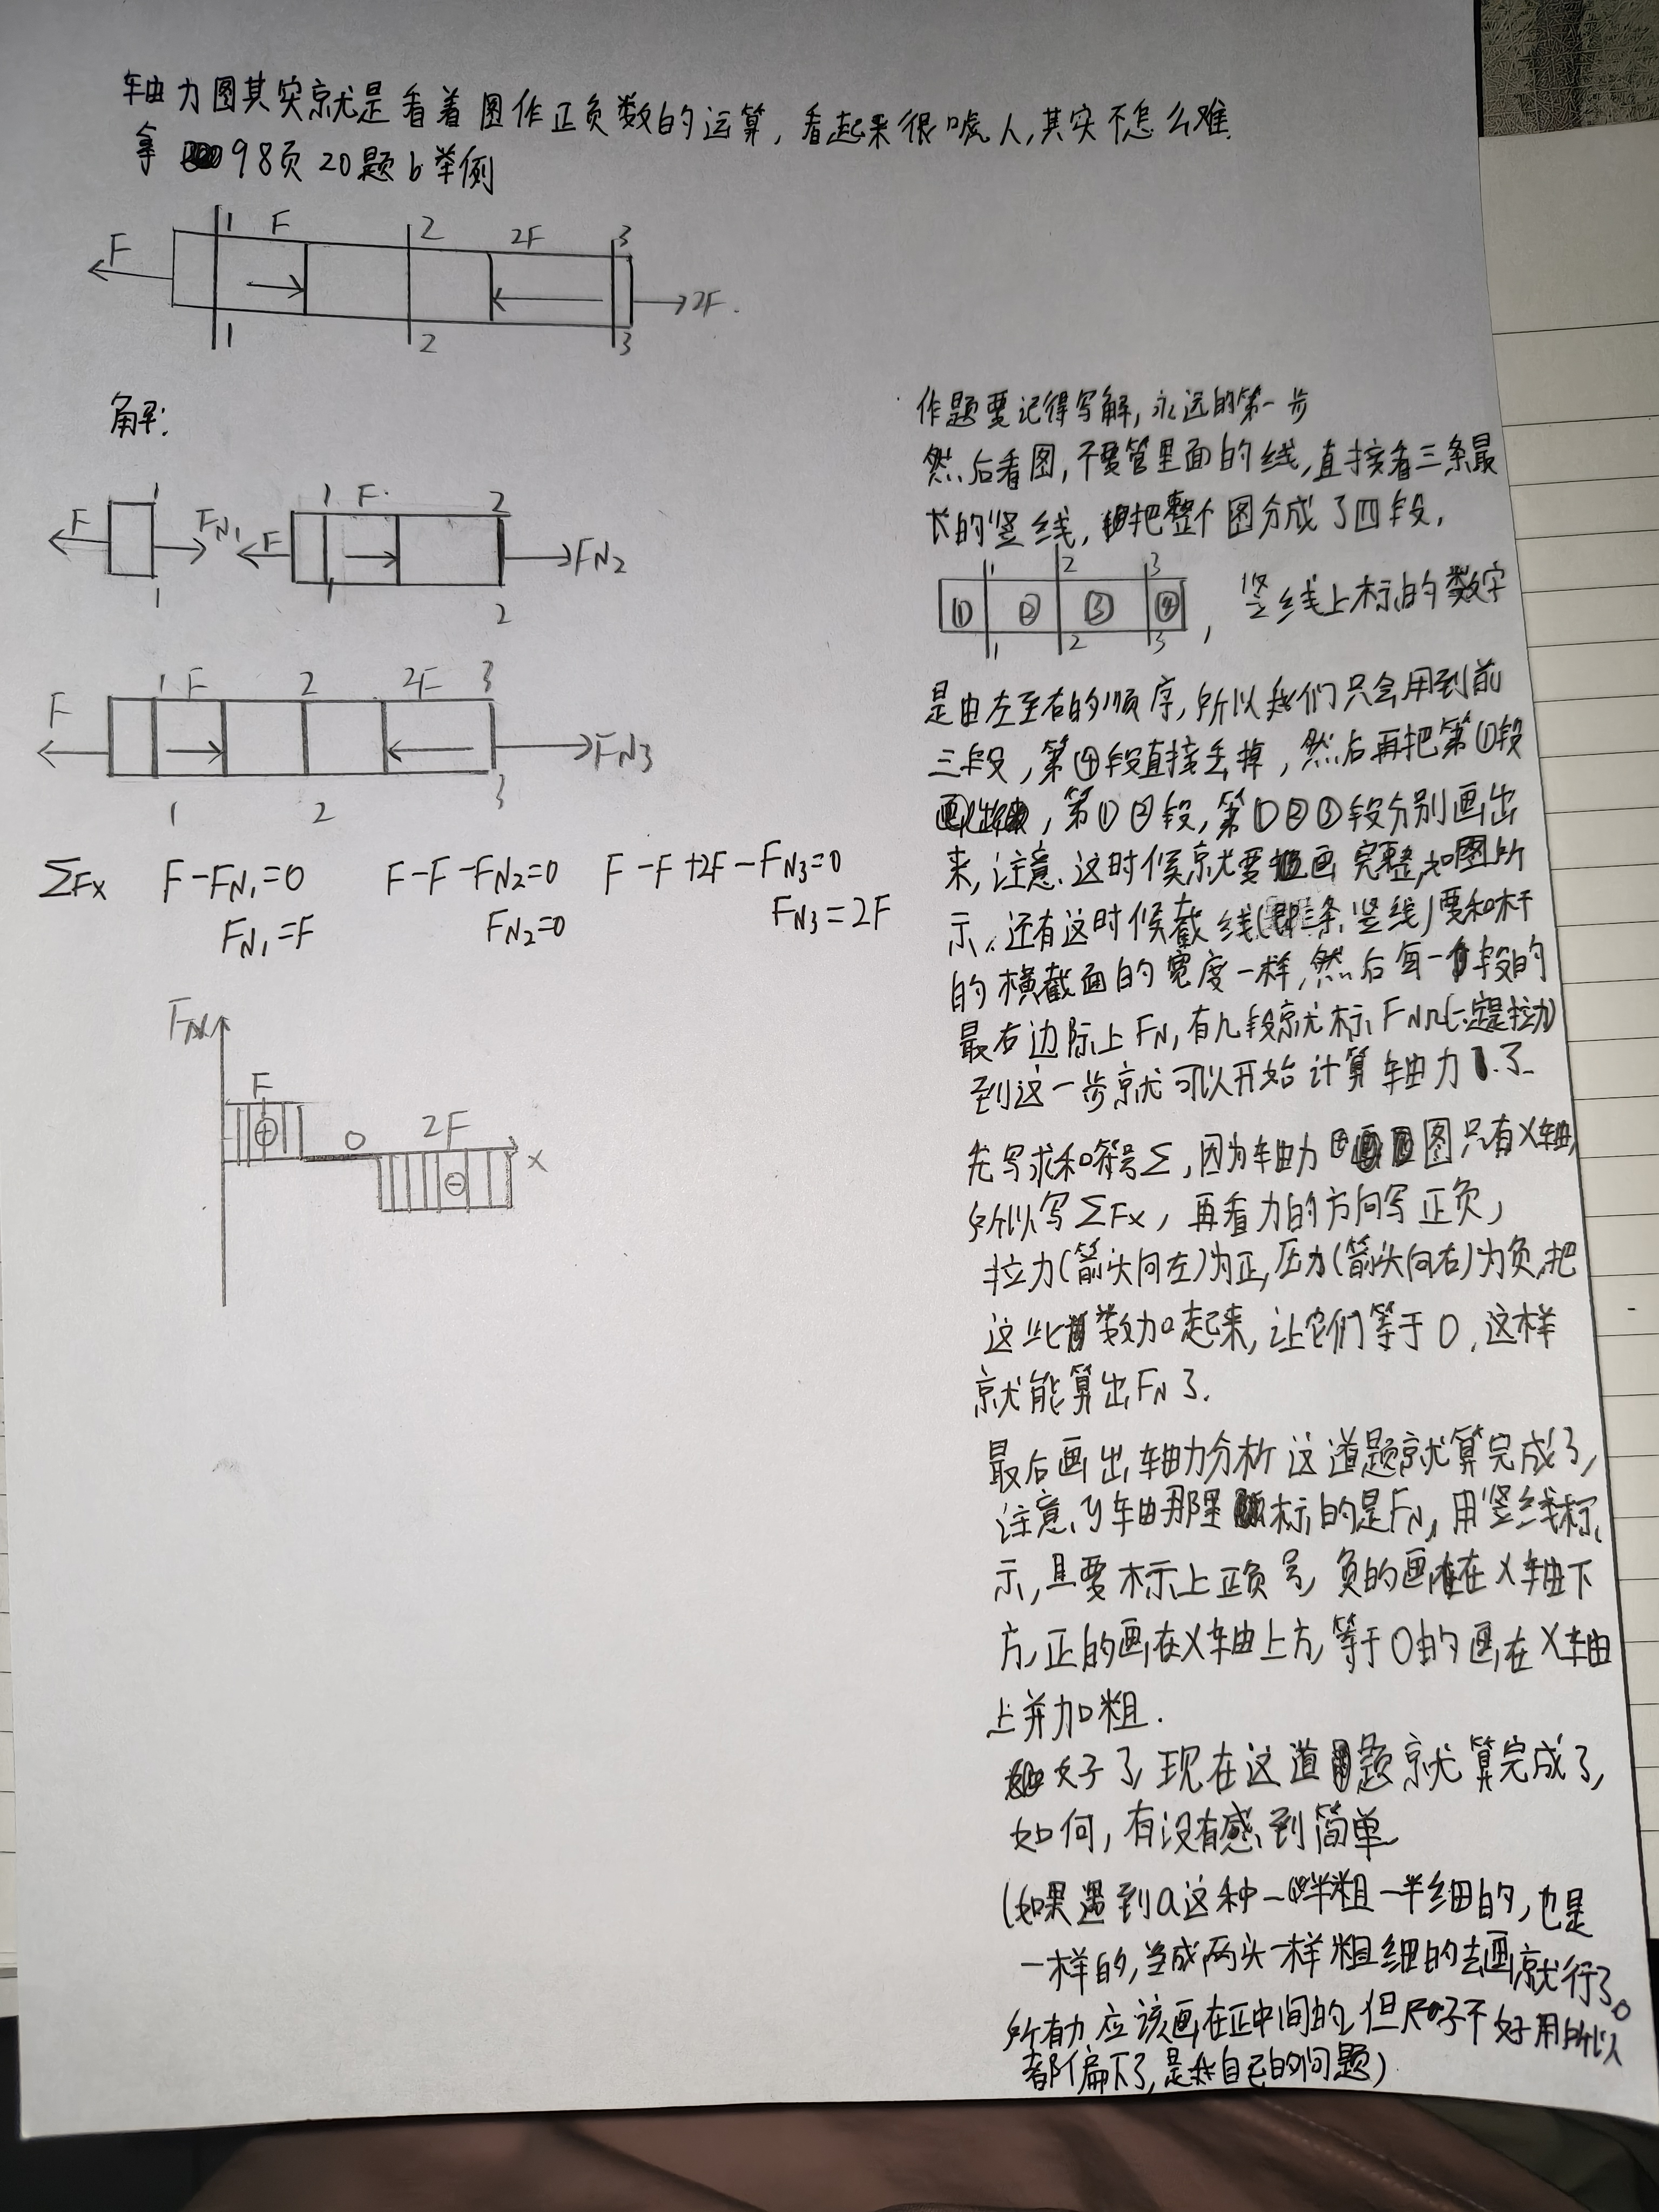 轴力图其实就是看着图作正负数的运算，看起来很唬人，其实不怎么难.
拿 98页20题b举例
F 1 F 2 2F 3
2F.
1 2 3
解:
F 1 FN1 F 1 F. 2 FN2
1 1 2
F 1 F 2 2F 3 FN3
1 2 3
ΣFx F-FN1=0 F-F-FN2=0 F-F+2F-FN3=0
FN1=F FN2=0 FN3=2F
FN
F
⊕ 0 2F x
⊖
作题要记得写解，永远的第一步
然后看图，不要管里面的线，直接看三条最
长的竖线，把整个图分成了四段，
1 2 3
① ② ③ ④ ，竖线上标的数字
1 2 3
是由左至右的顺序，所以我们只会用到前
三段，第④段直接丢掉，然后再把第①段
，第①②段，第①②③段分别画出
来，注意，这时候就要画完整，如图所
示，还有这时候截线(即三条竖线)要和杆
的横截面的宽度一样，然后每一段的
最右边标上FN，有几段就标FN几(一定是拉力)
到这一步就可以开始计算轴力了.
先写求和符号Σ，因为轴力图只有X轴，
所以写ΣFx，再看力的方向写正负，
拉力(箭头向左)为正，压力(箭头向右)为负，把
这些数加起来，让它们等于0，这样
就能算出FN了.
最后画出轴力分析这道题就算完成了，
注意，y轴那里标的是FN，用竖线标
示，且要标上正负号，负的画在X轴下
方，正的画在X轴上方，等于0的画在X轴
上并加粗.
好了，现在这道题就算完成了，
如何，有没有感到简单
(如果遇到a这种一半粗一半细的，也是
一样的，当成两头一样粗细的去画就行了。
所有力应该画在正中间的，但尺子不好用所以
都偏下了，是我自己的问题)